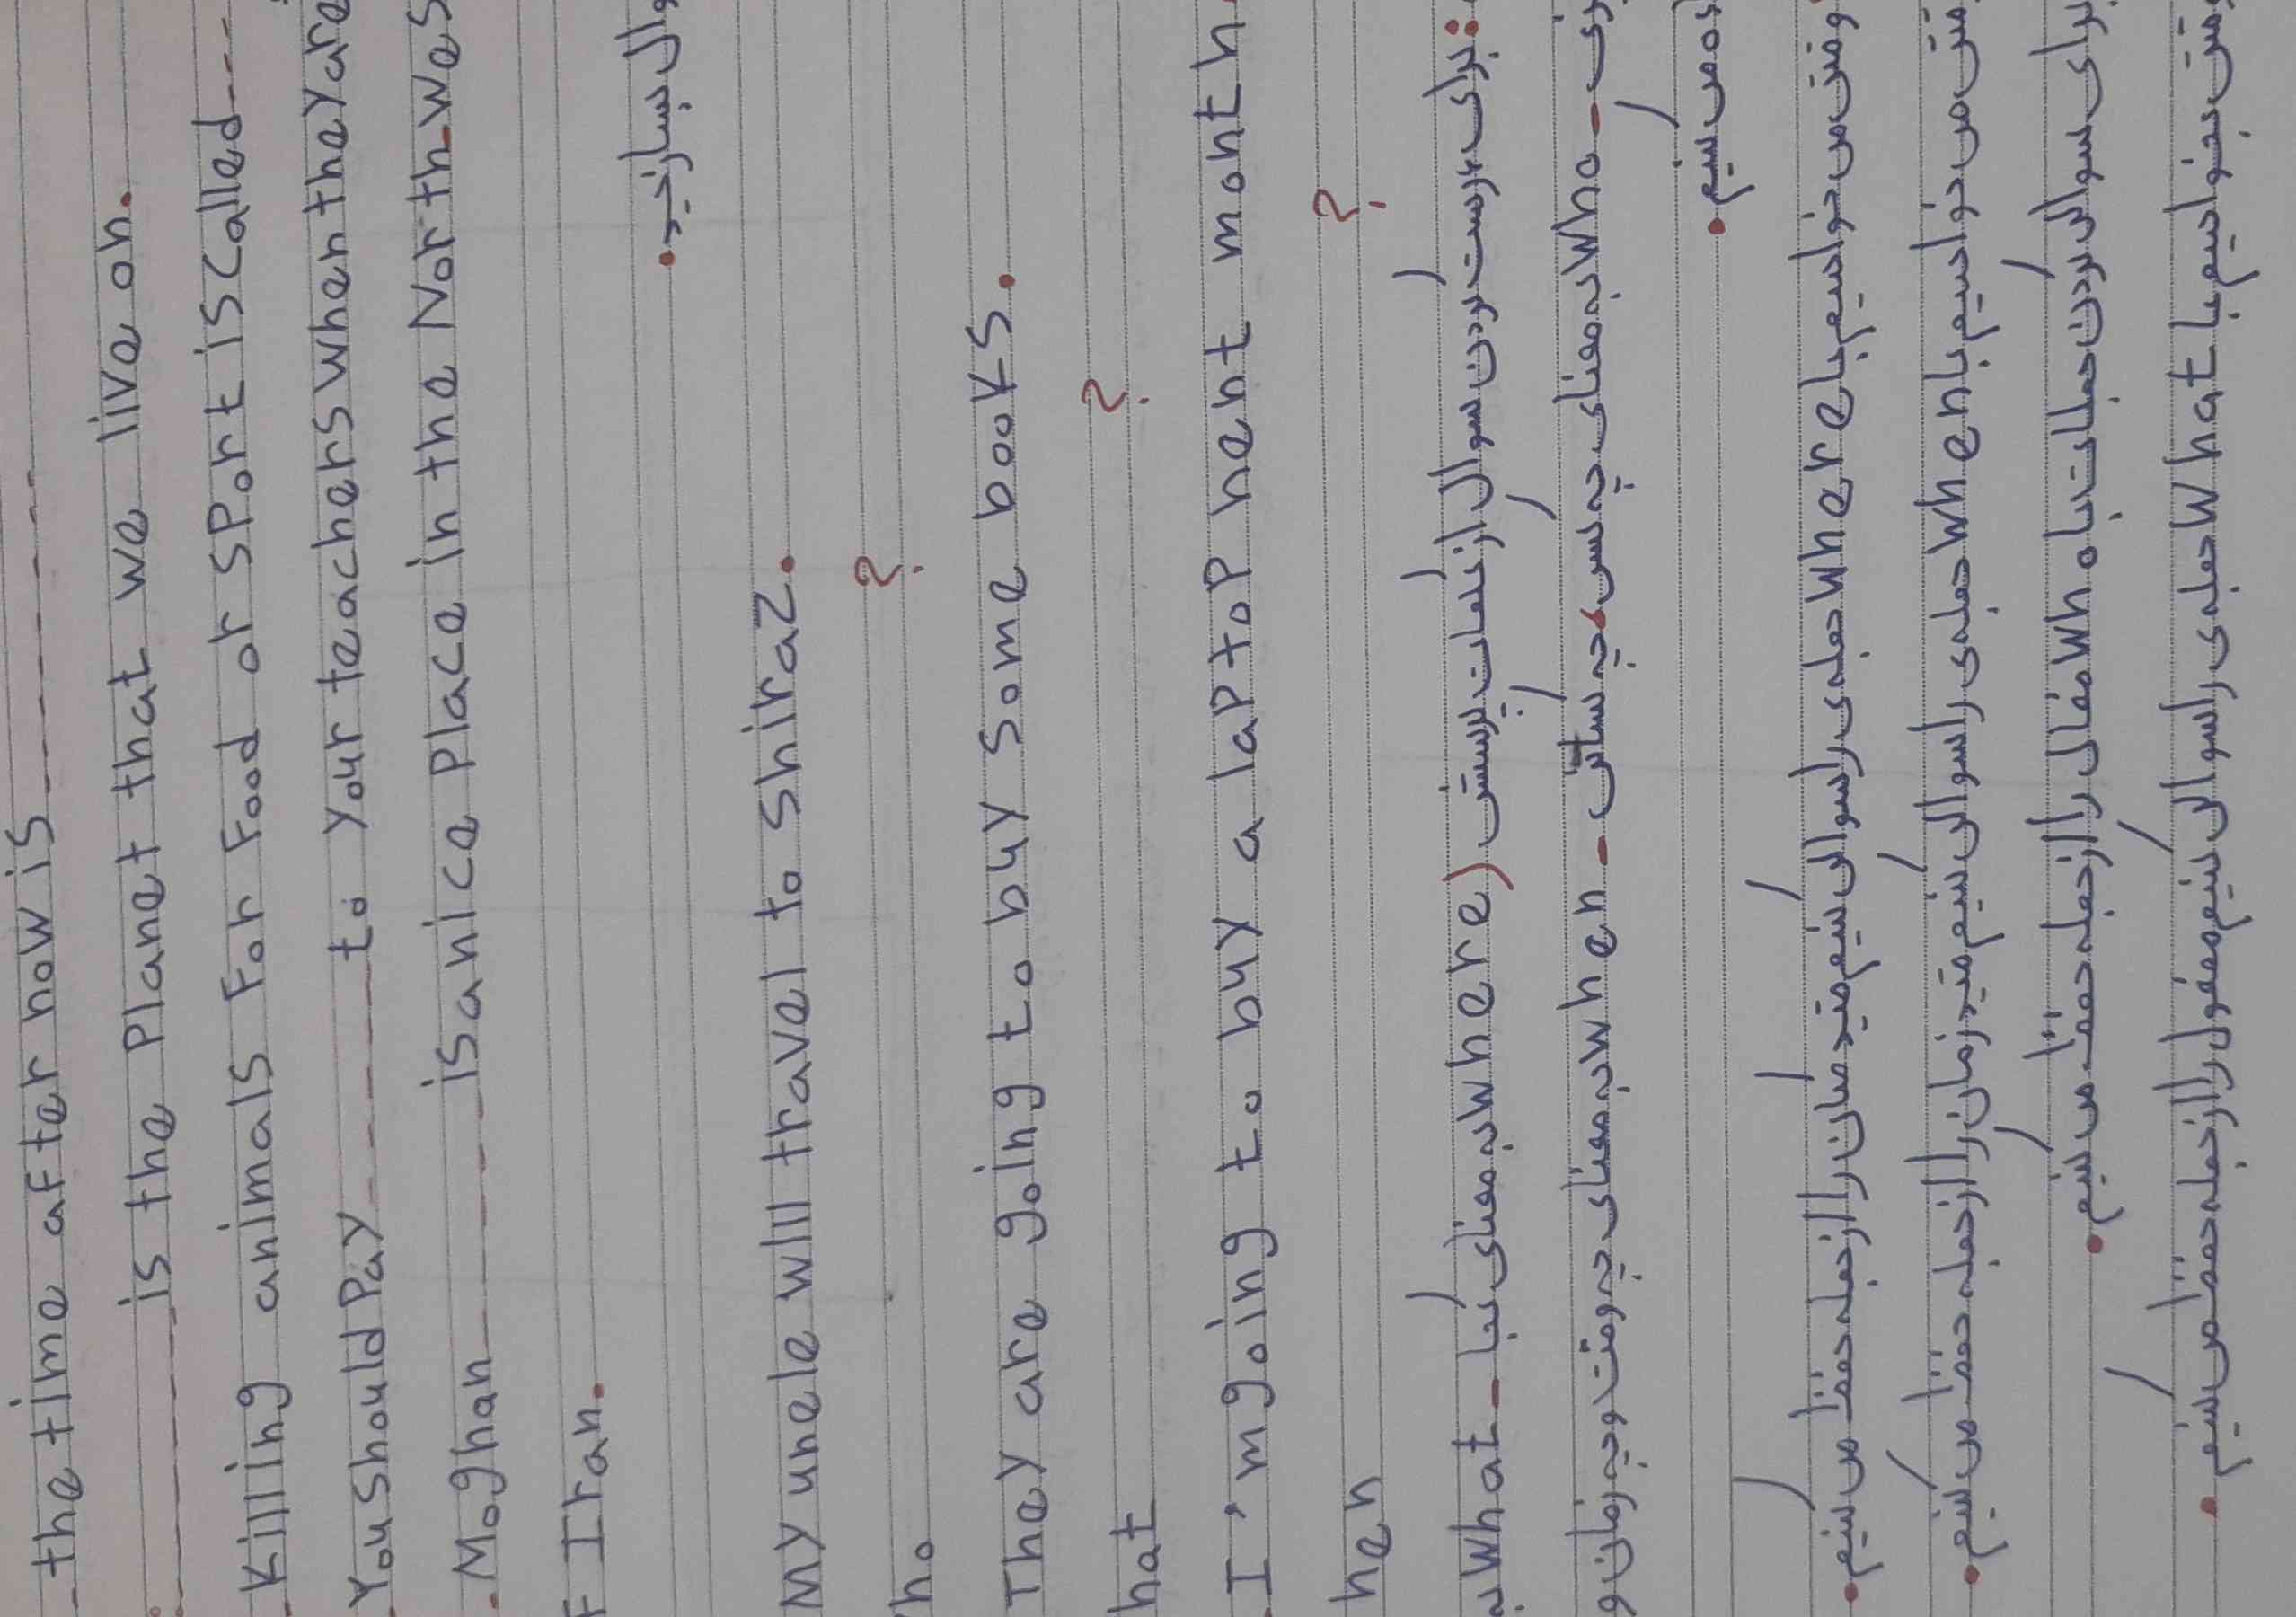 the time after now is
is the Planet that we live on.
Killing animals For Food or SPort is Called
You should Pay to Your teachers when they are
Moghan is a nice Place in the North-wes
F Iran.
وال بسازید.
My uncle will travel to Shiraz.
ho ?
They are going to buy some books.
hat ?
I'm going to buy a laptop next month.
hen ?
برای درست کردن سوال از کلمات پرسشی (where به معنای کجا - what به
who - به معنای چه کسی، چه کسانی - when به معنای چه وقت و چه زمان و
می کنیم.
وقتی می خواهیم با where جمله ی را سوالی کنیم قید مکان را از جمله حذف می کنیم.
قتی می خواهیم با when جمله ی را سوالی کنیم قید زمان را از جمله حذف می کنیم.
برای سوالی کردن جملات با who فاعل را از جمله حذف می کنیم.
قتی بخواهیم با what جمله ی را سوالی کنیم مفعول را از جمله حذف می کنیم.